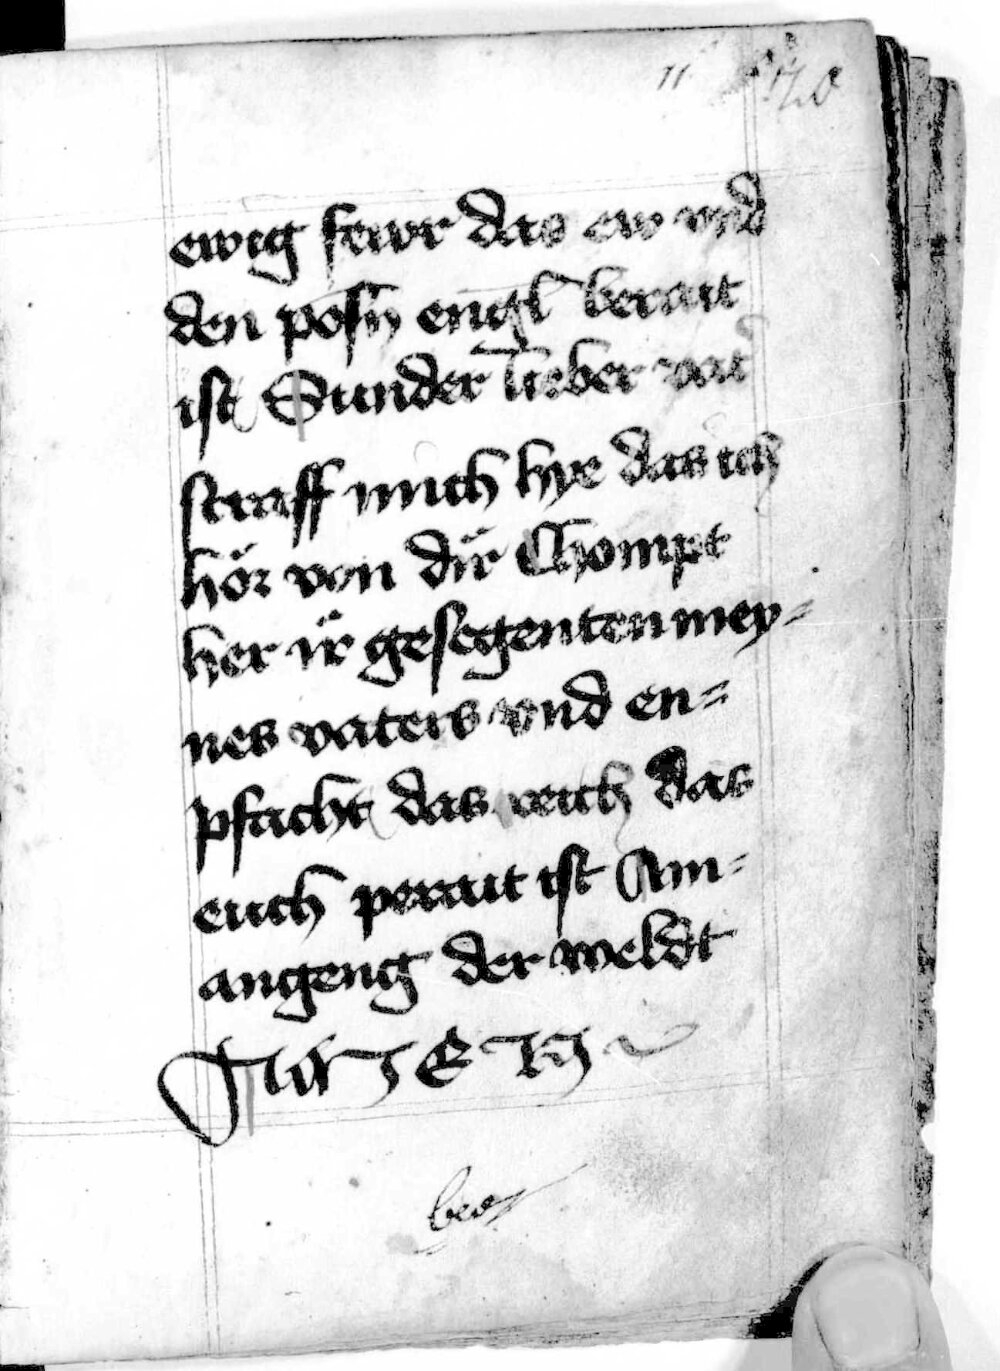 ewig fewr das ew vnd
den posn̄ engl berait
ist Sunder lieber vat
straff mich hye das ich
hör von dir Chompt
her ir gesegenten mey=
nes vaters vnd en=
pfacht das reich das
euch perait ist Am=
angeng der weldt